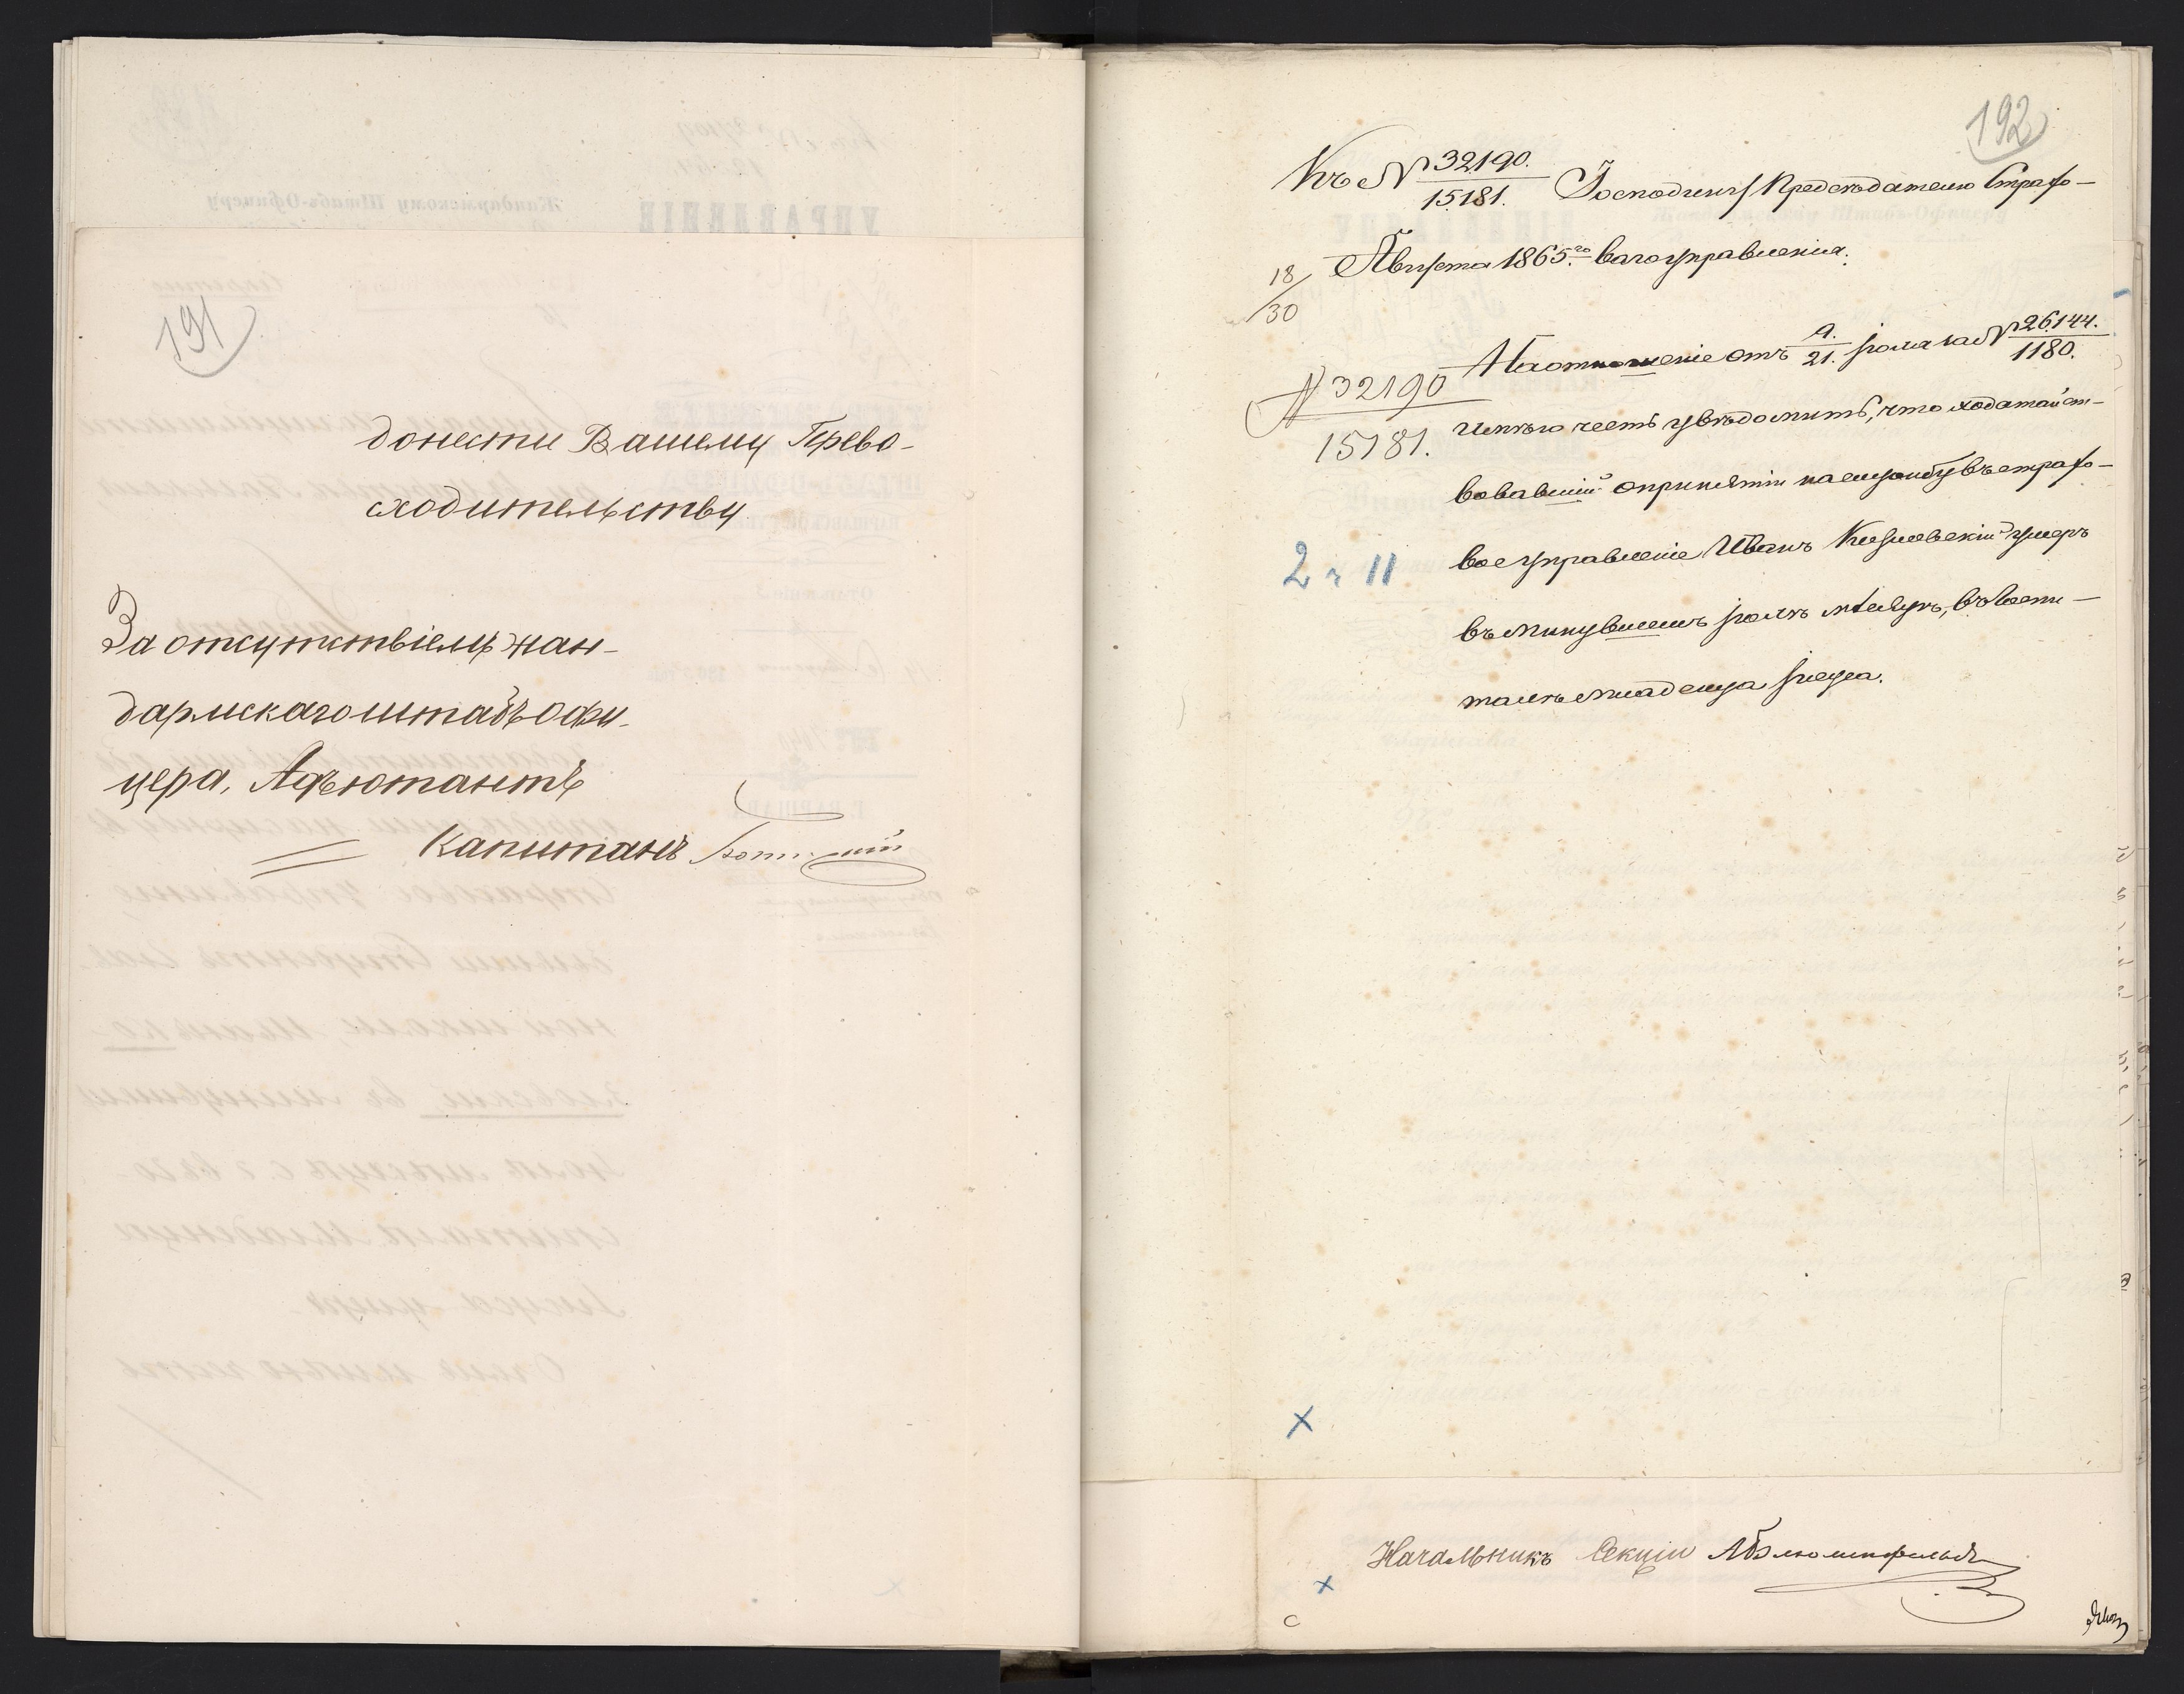 191
донести Вашему Прево-
сходительству
За отсутствіемъ жан-
дармскаго штабъ офи-
цера, Адъютантъ
Капитанъ
192
Къ № 32190./15181. Господину Предсѣдателю Страхо-
18/30 Августа 1865.го ваго управленія.
На отношеніе отъ 9./21. Іюля за № 26144./1180.
№ 32190/15181.
имѣю честь увѣдомить, что ходатайст-
вовавшій о принятіи на службу въ страхо-
2 ч 11
вое управленіе Иванъ умеръ
въ минувшемъ Іюлѣ мѣсяцѣ, въ госпи-
талѣ младенца Іисуса.
Начальникъ Секціи